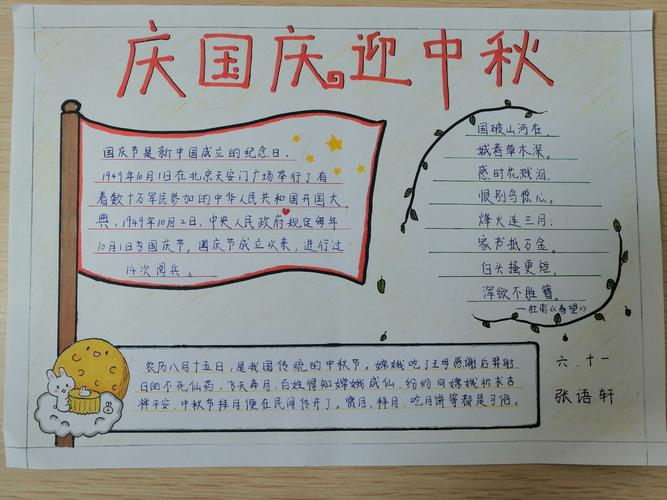 庆国庆迎中秋
国庆节是新中国成立的纪念日,
1949年10月1日在北京天安门广场举行了有
着数十万军民参加的中华人民共和国开国大
典,1949年10月2日,中央人民政府规定每年
10月1日为国庆节。国庆节成立以来,进行过
14次阅兵。
国破山河在,
城春草木深。
感时花溅泪,
恨别鸟惊心。
烽火连三月,
家书抵万金。
白头搔更短,
浑欲不胜簪。
—杜甫《春望》
农历八月十五日,是我国传统的中秋节。嫦娥吃了王母感谢后羿射
日的不死仙药,飞天奔月,百姓得知嫦娥成仙,纷纷向嫦娥祈求吉
祥平安,中秋节拜月便在民间传开了。赏月,拜月,吃月饼等都是习俗。
六.十一
张语轩